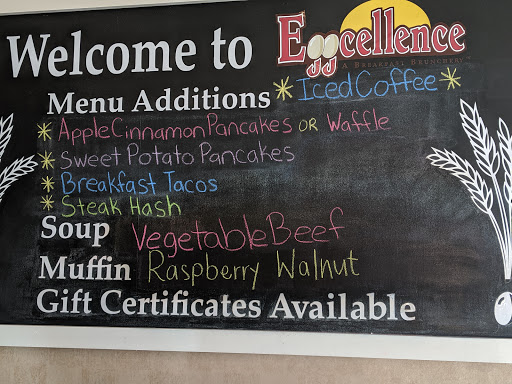 Welcome to Eggcellence
A Breakfast Brunchery
Menu Additions * Iced Coffee *
* Apple Cinnamon Pancakes or Waffle
* Sweet Potato Pancakes
* Breakfast Tacos
* Steak Hash
Soup Vegetable Beef
Muffin Raspberry Walnut
Gift Certificates Available